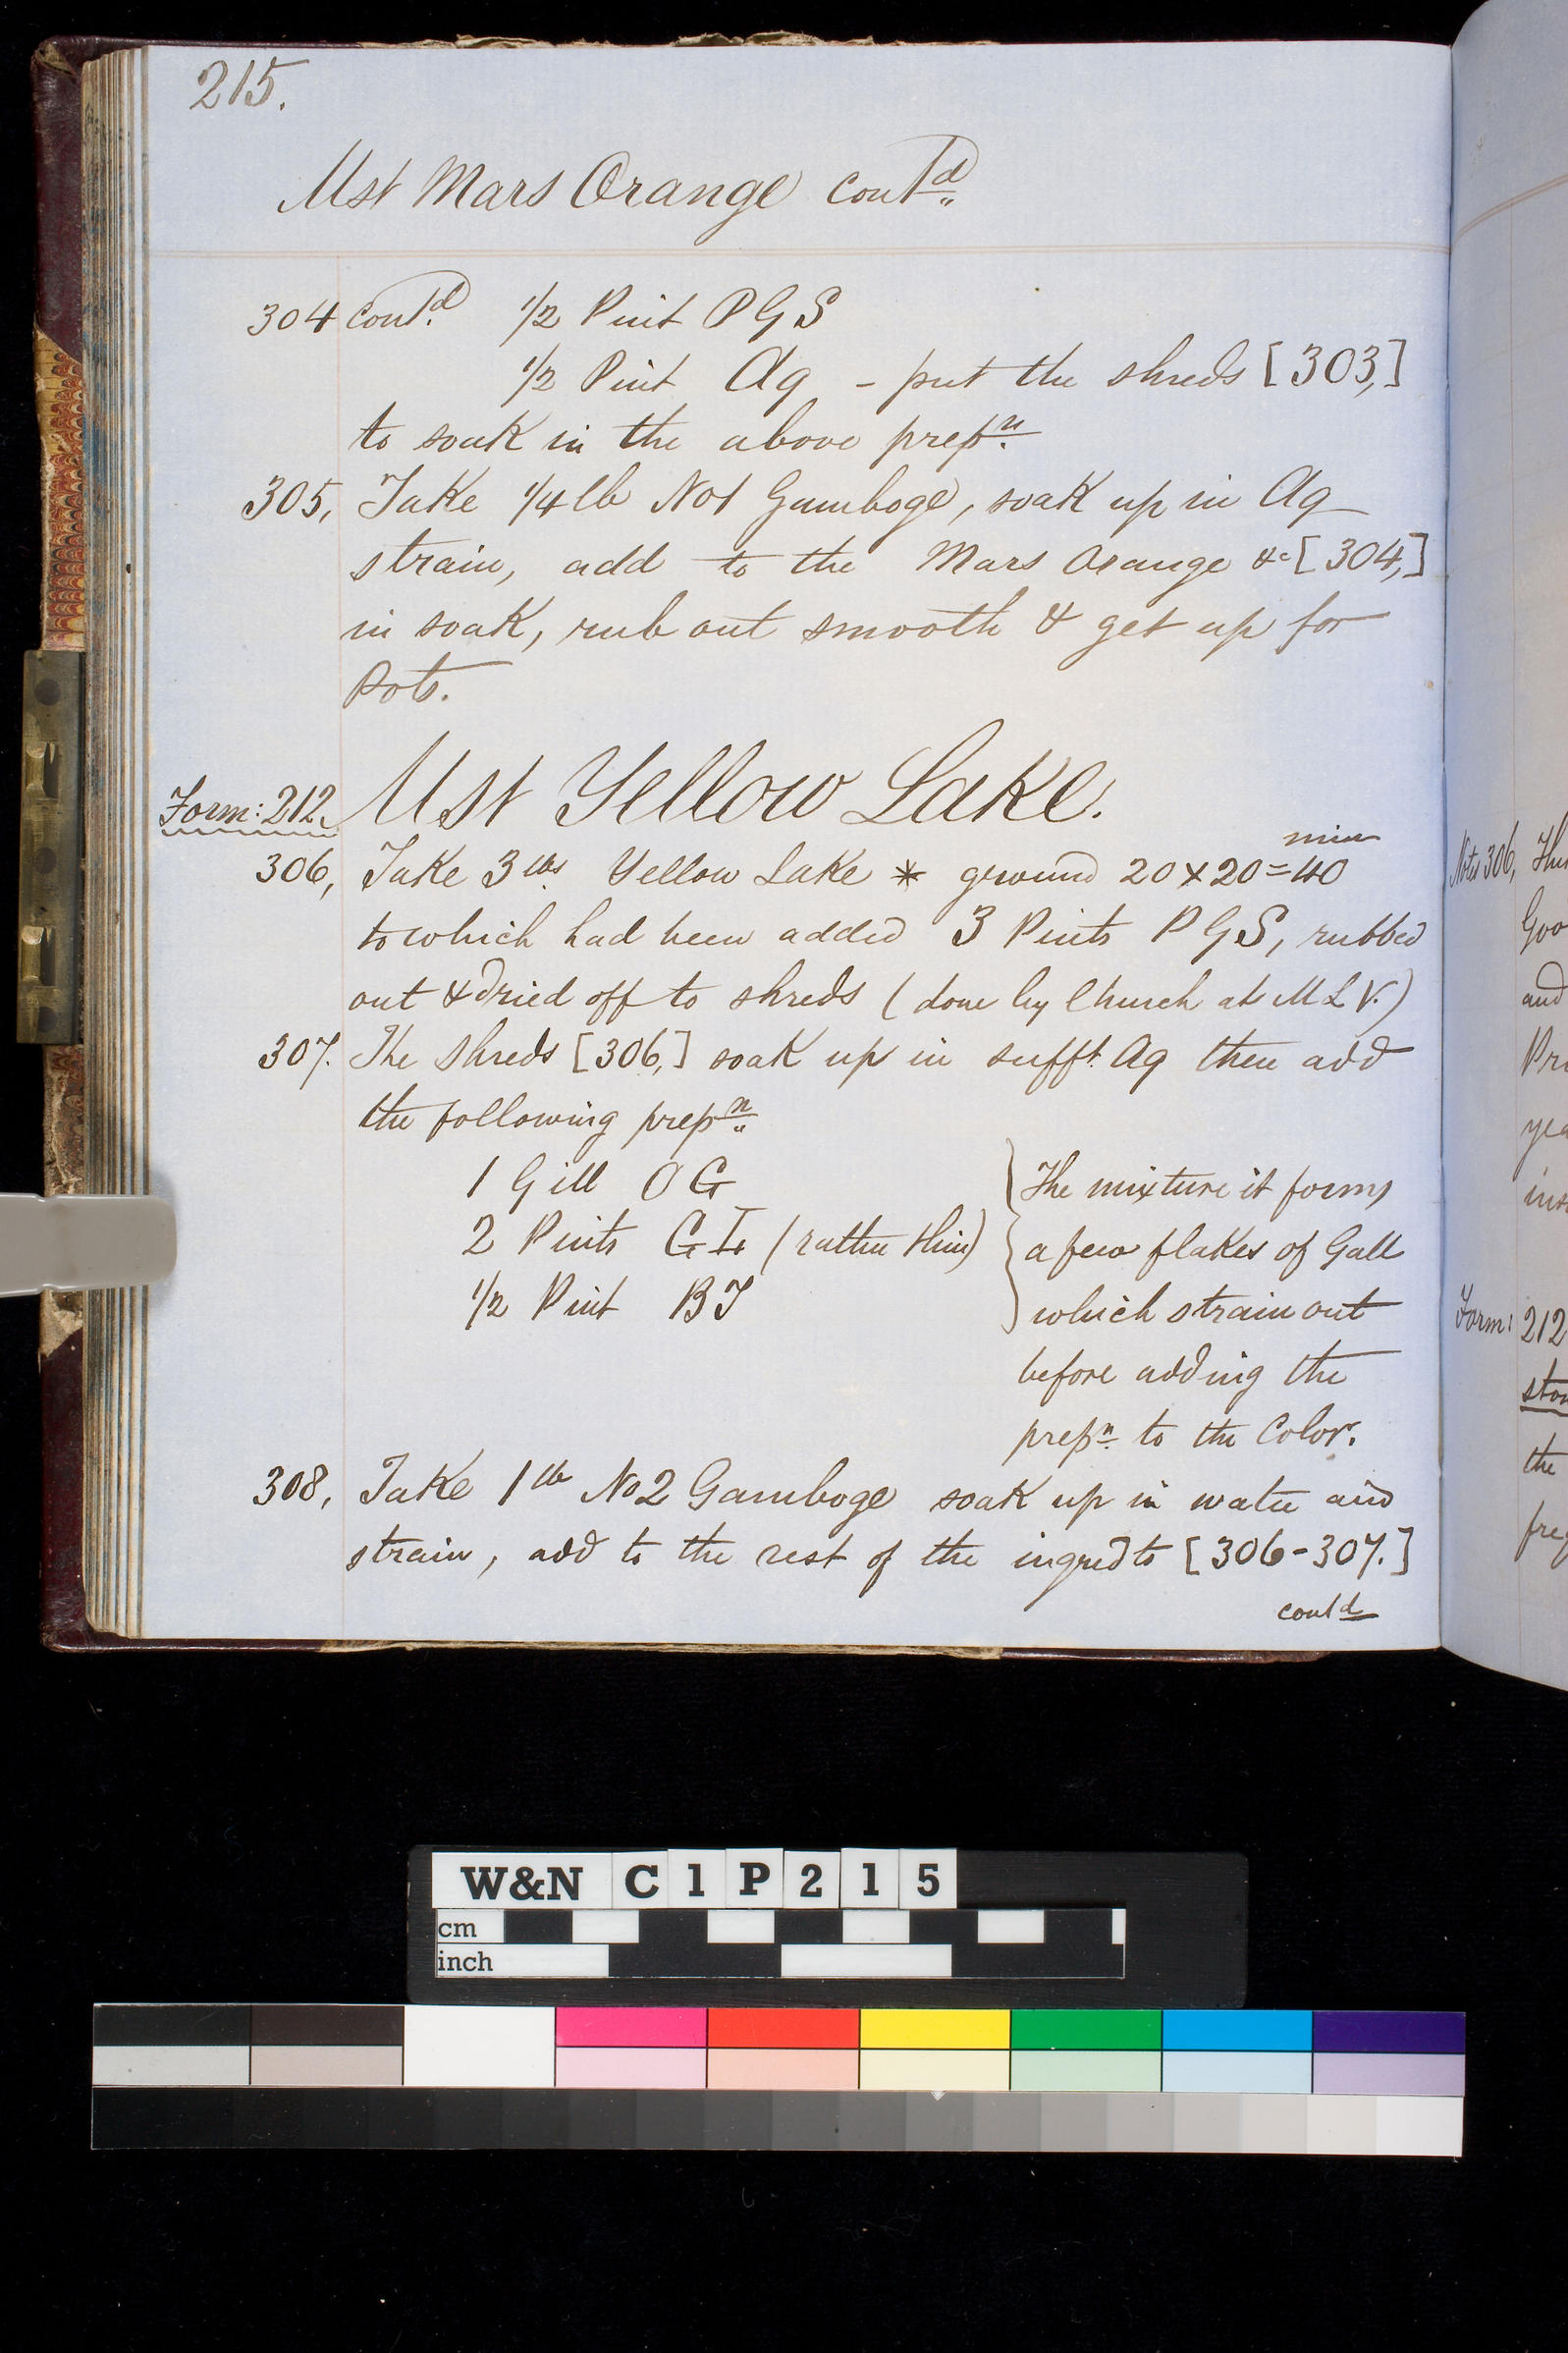 215.
Mst Mars Orange contd
304 contd. 1/2 Pint P G S
1/2 Pint Aq - put the shreds [303,]
to soak in the above prepn.
305, Take 1/4 lb No1 Gamboge, soak up in Aq
strain, add to the Mars Orange &c [304,]
in soak, rub out smooth & get up for
Pots.
Form: 212. Mst Yellow Lake.
306, Take 3 lbs Yellow Lake * ground 20 x 20 = 40 min
to which had been added 3 Pints P G S, rubbed
out & dried off to shreds (done by Church at M L V.)
307. The shreds [306,] soak up in sufft. Aq then add
the following prepn.
1 Gill O G
2 Pints G I (rather thin)
1/2 Pint B T
The mixture it forms
a few flakes of Gall
which strain out
before adding the
prepn. to the Color.
308, Take 1 lb No2 Gamboge soak up in water and
strain, add to the rest of the ingredts [306-307.]
contd
Notes 306,
Goo
and
Pri
yea
ins
Form: 212
the
W&N C 1 P 2 1 5
cm
inch